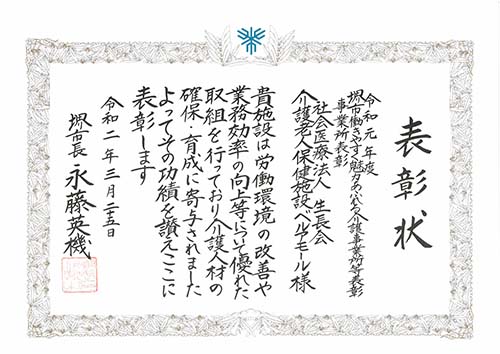 表彰状
令和元年度
堺市働きやすい魅力あふれる介護事業所等表彰
事業所表彰
社会医療法人 生長会
介護老人保健施設ベルアモール様
貴施設は労働環境の改善や
業務効率の向上等について優れた
取組を行っており介護人材の
確保・育成に寄与されました
よってその功績を讃えここに
表彰します
令和二年三月二五日
堺市長 永藤英機